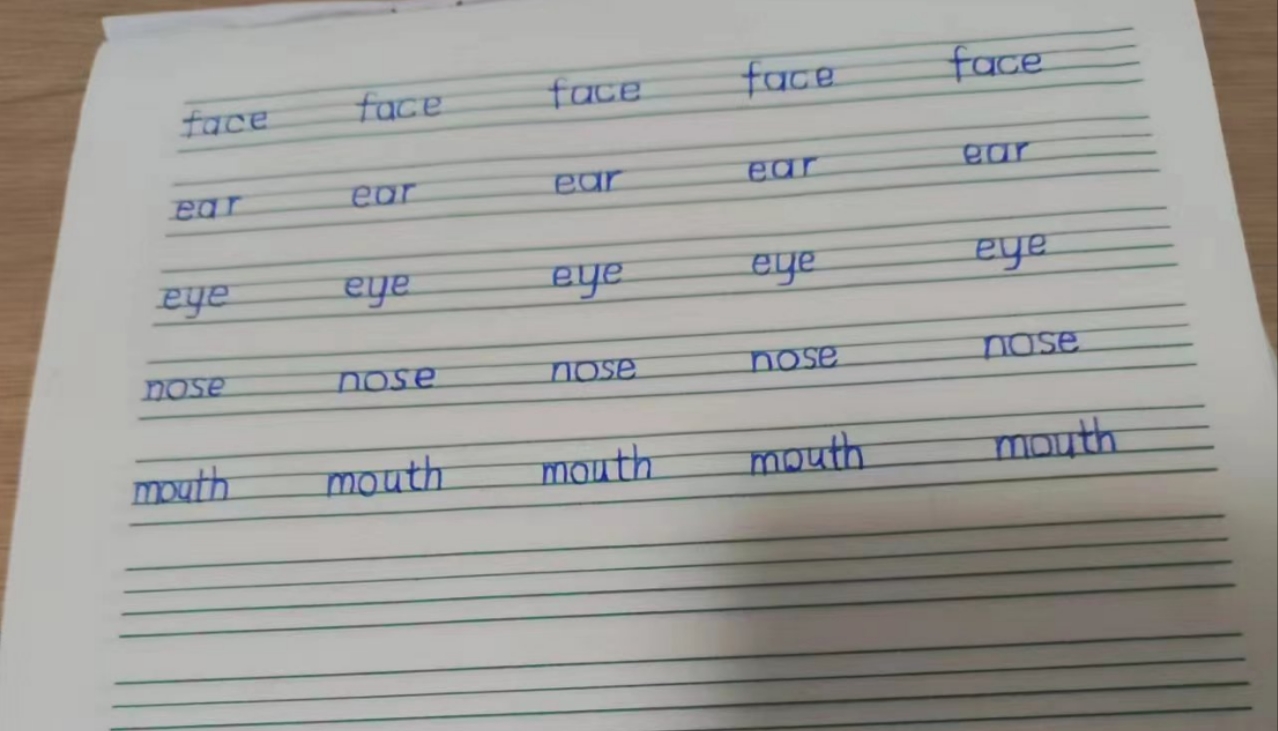 face face face face face
ear ear ear ear ear
eye eye eye eye eye
nose nose nose nose nose
mouth mouth mouth mouth mouth